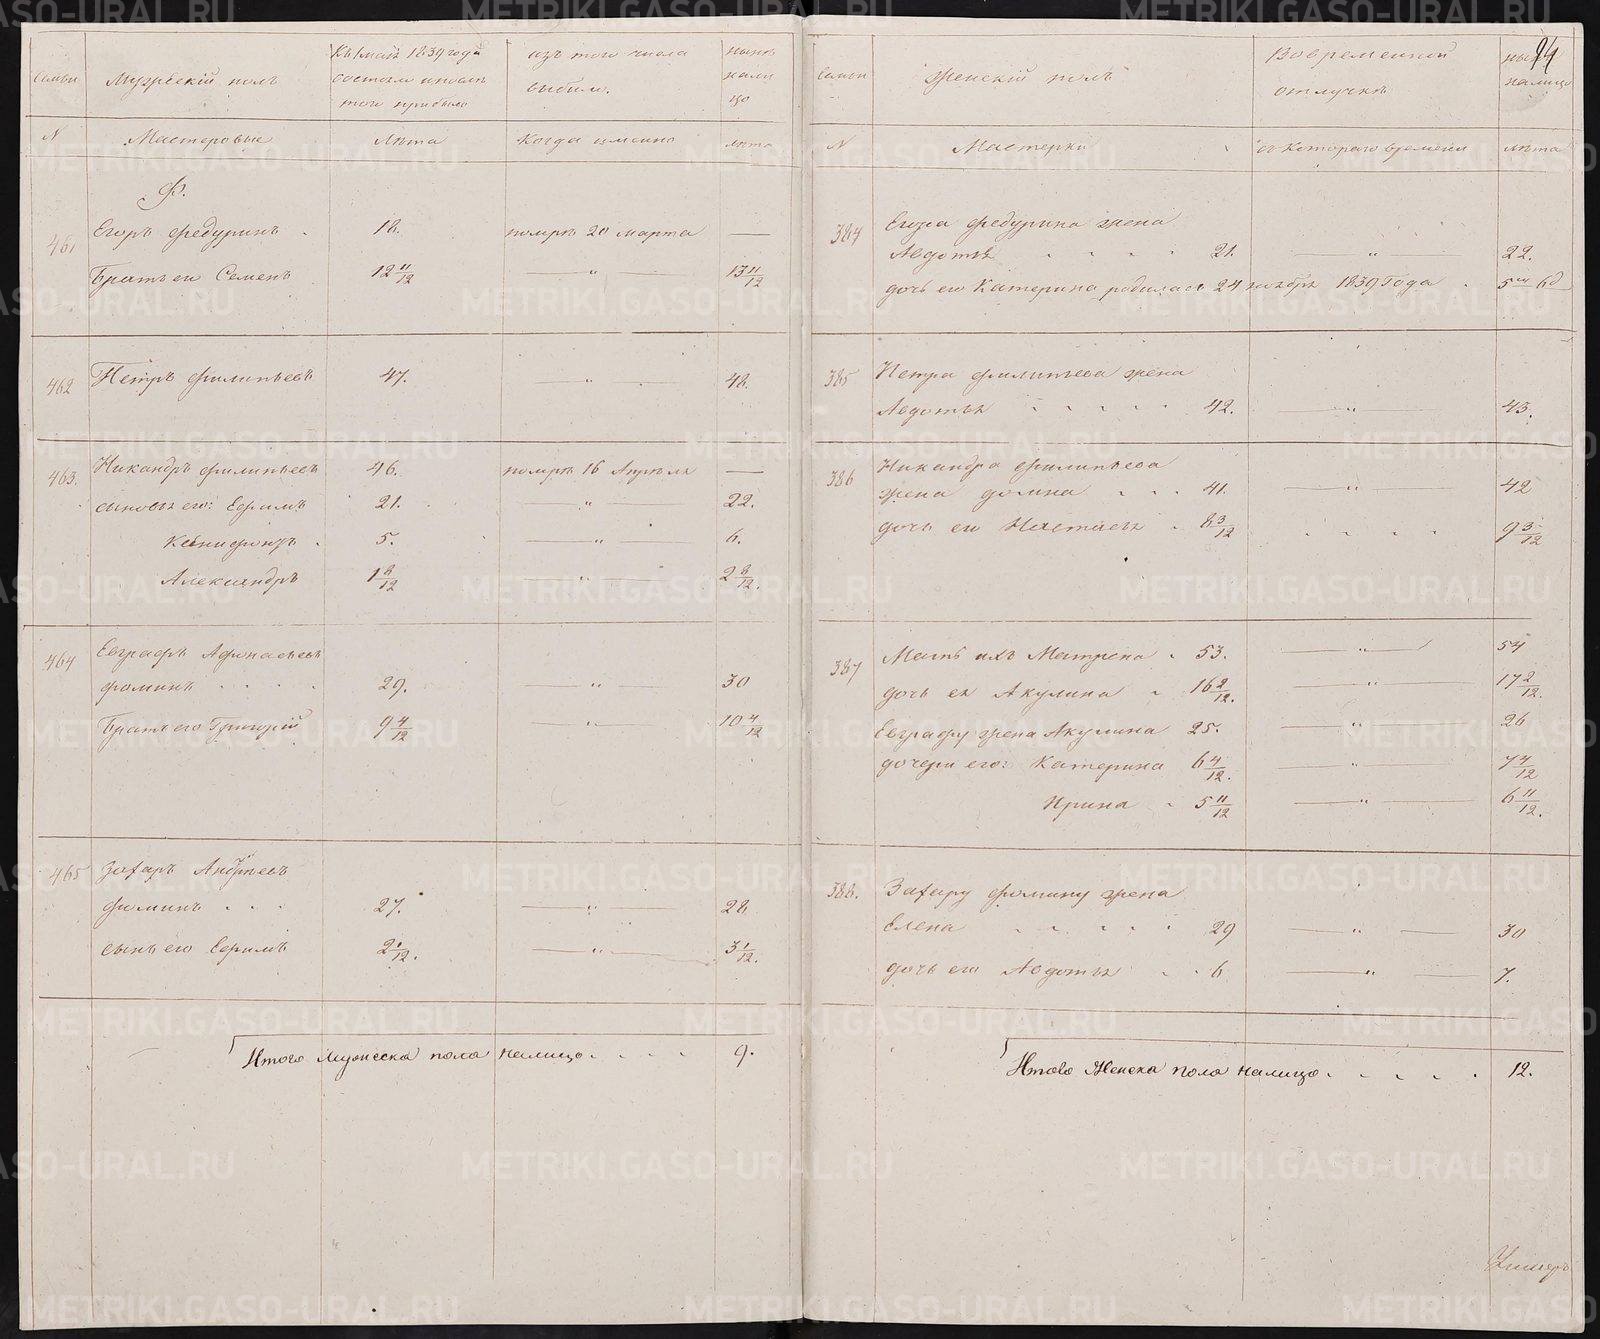 Семьи
Мужескiй полъ
Къ 1 маiя 1839 года
состояло и послѣ
того прибыло
изъ того числа
выбыло.
нынѣ
нали
цо
N
Мастеровые
Лѣта
Когда имянно
лѣта
Ф.
461
Егоръ Федуринъ
18.
помръ 20 марта
Братъ ею Семенъ
12 11/12
"
13 11/12
462
Петръ Филипьевъ
47.
"
48.
463.
Никандръ Филипьевъ
46.
помръ 16 Апрѣля
сыновья его: Ефимъ
21.
"
22.
Ксенифонтъ
5.
"
6.
Александръ
1 8/12
"
2 8/12.
464
Евграфъ Афонасьевъ
Фоминъ
29.
"
30
Братъ его Григорiй
9 4/12
"
10 4/12
465
Захаръ Андреевъ
Фоминъ
27.
"
28
сынъ ею Ефимъ
2 1/12.
"
3 1/12.
Итого мужеска пола налицо
9.
94
Семьи
Женскiй полъ
Во временной
отлучкѣ
налицо
N
Мастерки
съ котораго времени
лѣта
384
Егора Федурина жена
Авдотья
21.
"
22.
дочь его Катерина родилась 24 ноября 1839 года
5 6
385
Петра Филипьева жена
Авдотья
42.
"
43.
386
Никандра Филипьева
жена Домна
41.
"
42
дочь ею Настасья
8 3/12
9 3/12
387
Мать ихъ Матрена
53.
"
54
дочь ея Акулина
16 2/12.
"
17 2/12.
Евграфу жена Акулина
25.
"
26
дочери его: Катерина
6 4/12.
"
7 4/12
Ирина
5 11/12
"
6 11/12.
388.
Захару Фомину жена
Елена
29
"
30
дочь его Авдотья
6
"
7.
Итого Женска пола налицо
12.
METRIKI.GASO-URAL.RU